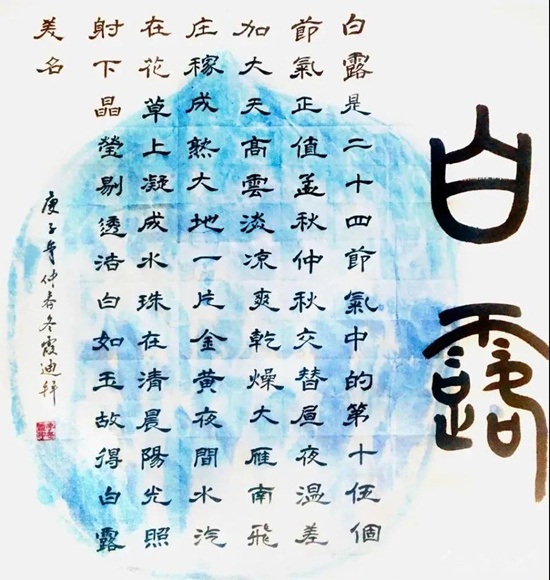 白露
白露是二十四節氣中的第十伍個
節氣正值孟秋仲秋交替昼夜温差
加大天高雲淡凉爽乾燥大雁南飛
庄稼成熟大地一片金黄夜間水汽
在花草上凝成水珠在清晨陽光照
射下晶瑩剔透洁白如玉故得白露
美名
庚子年仲春冬霞迪